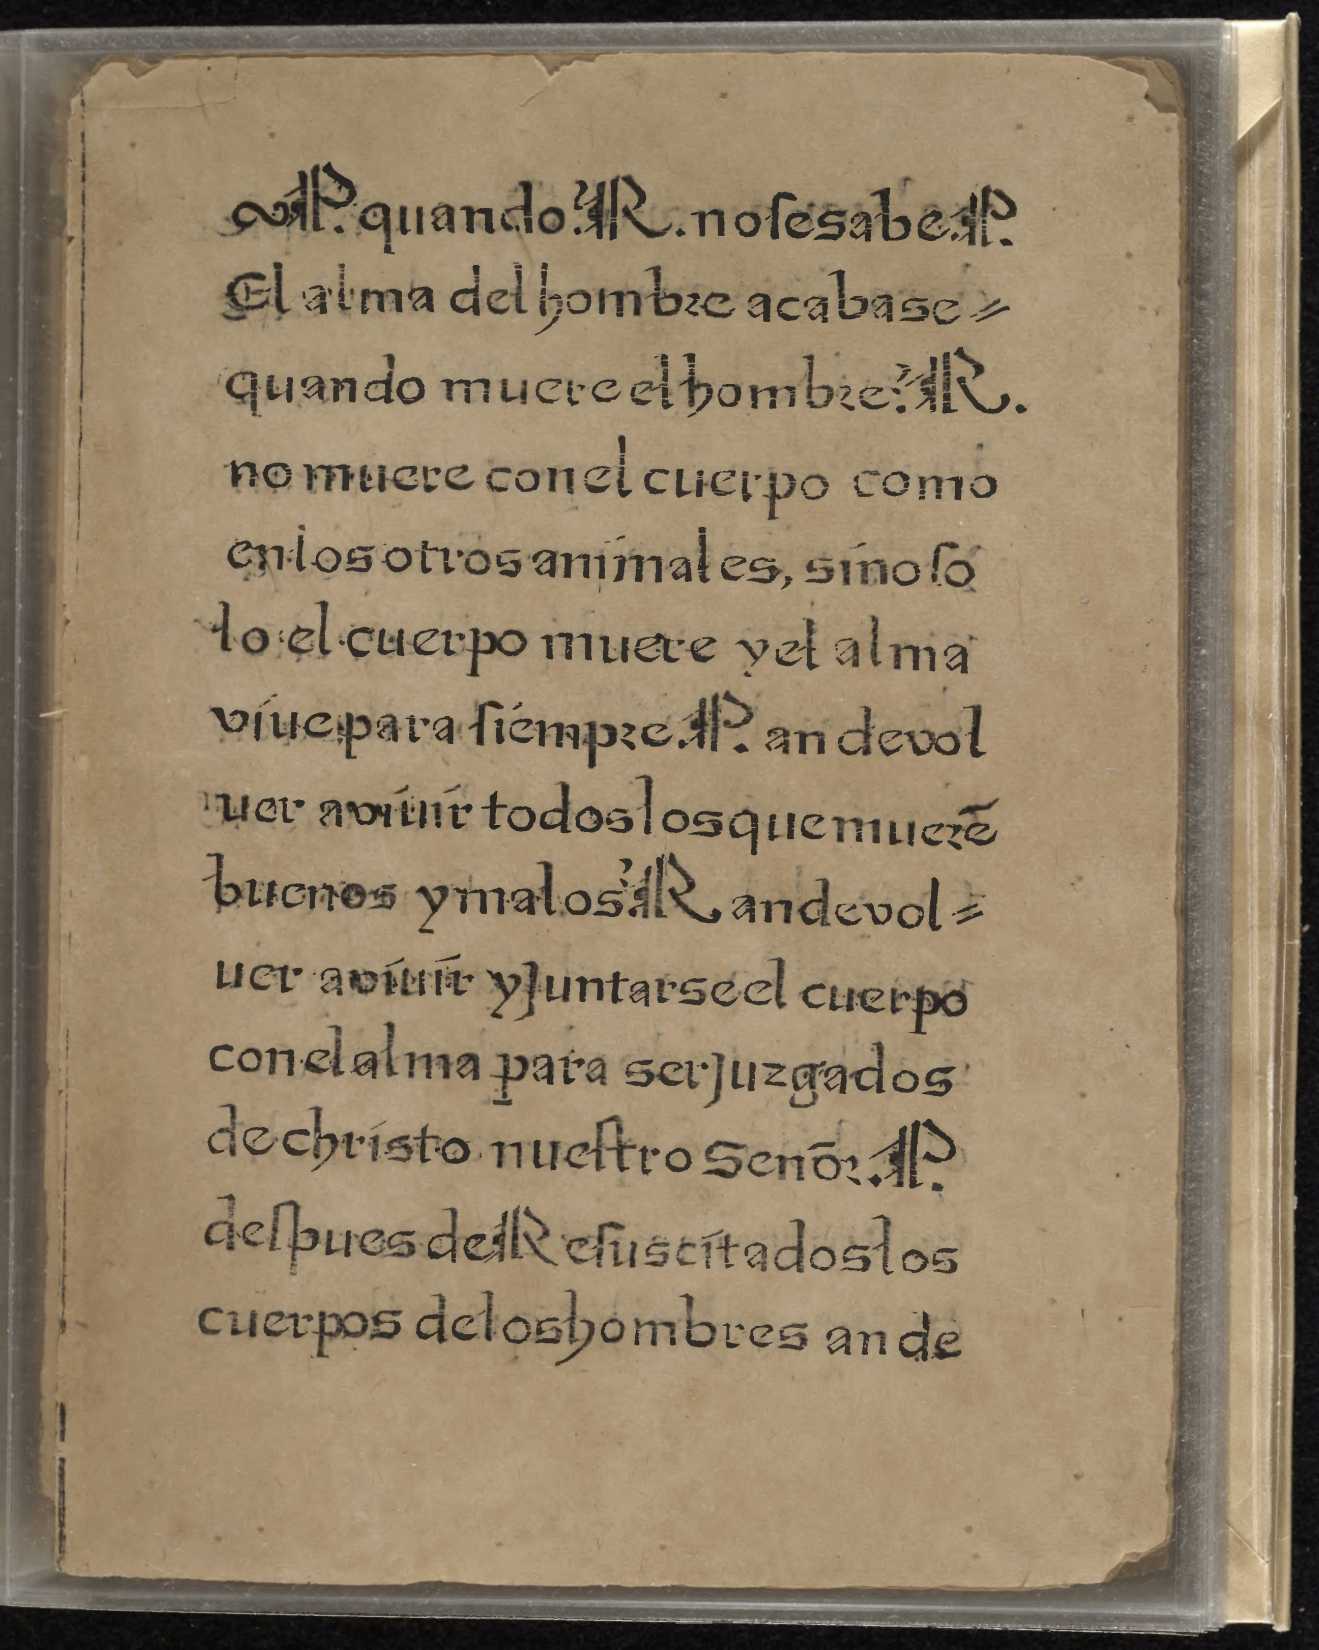 P. quando? R. no ſe sabe. P.
El alma del hombre acabase=
quando muere el hombre? R.
no muere con el cuerpo como
en los otros animales, sino ſo
lo el cuerpo muere y el alma
viue para ſiempre. P. an de vol
uer a viuir todos los que muerē
buenos y malos? R an de vol=
uer a viuir y Juntarse el cuerpo
con el alma para ser juzgados
de christo nueſtro Senõr. P.
deſpues de Reſuscitados los
cuerpos de los hombres an de